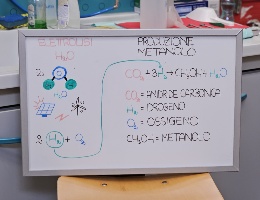 ELETTROLISI
H₂O
PRODUZIONE
METANOLO
CO₂ + 3H₂ → CH₃OH + H₂O
H₂O
CO₂ = ANIDRIDE CARBONICA
H₂ = IDROGENO
O₂ = OSSIGENO
CH₃OH = METANOLO
2) H₂ + O₂